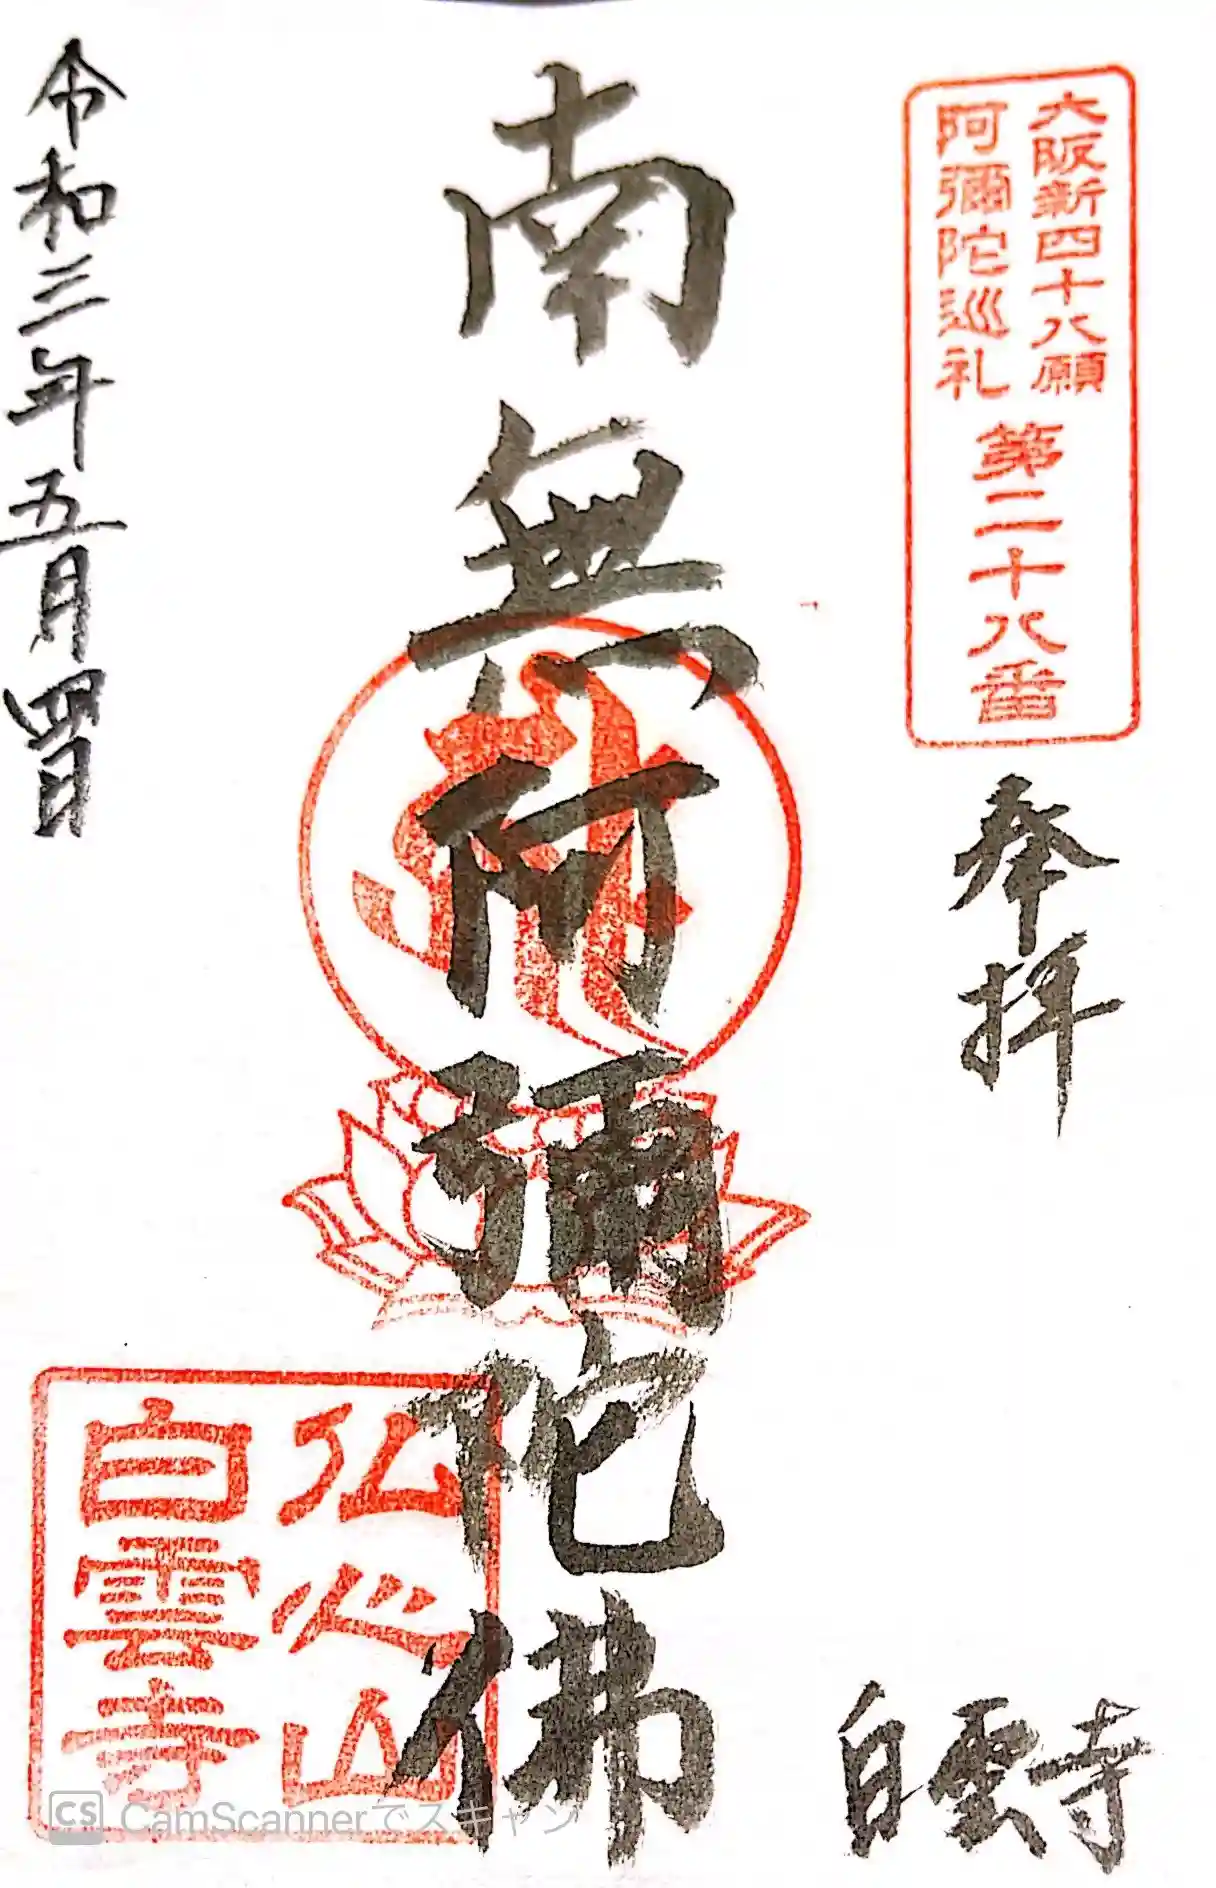 大阪新四十八願
阿彌陀巡礼
第二十八番
奉拝
白雲寺
南無阿彌陀佛
仏心山
白雲寺
令和三年五月四日
CS CamScannerでスキャン